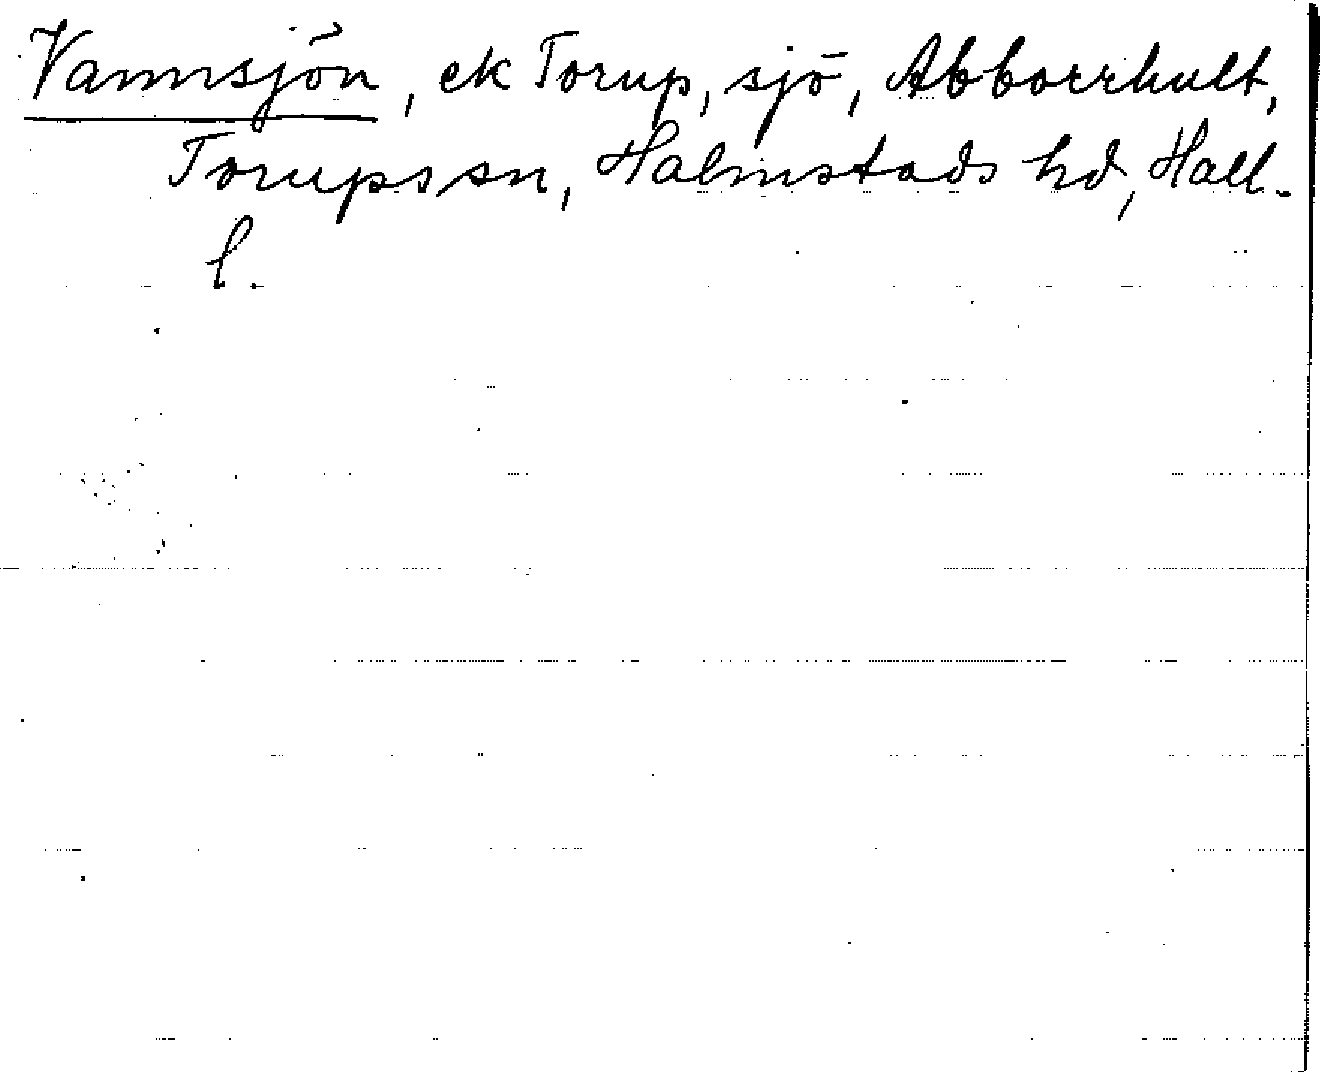 Vannsjön, ek Torup, sjö, Abborrhult,
Torups sn, Halmstads hd, Hall.
l.